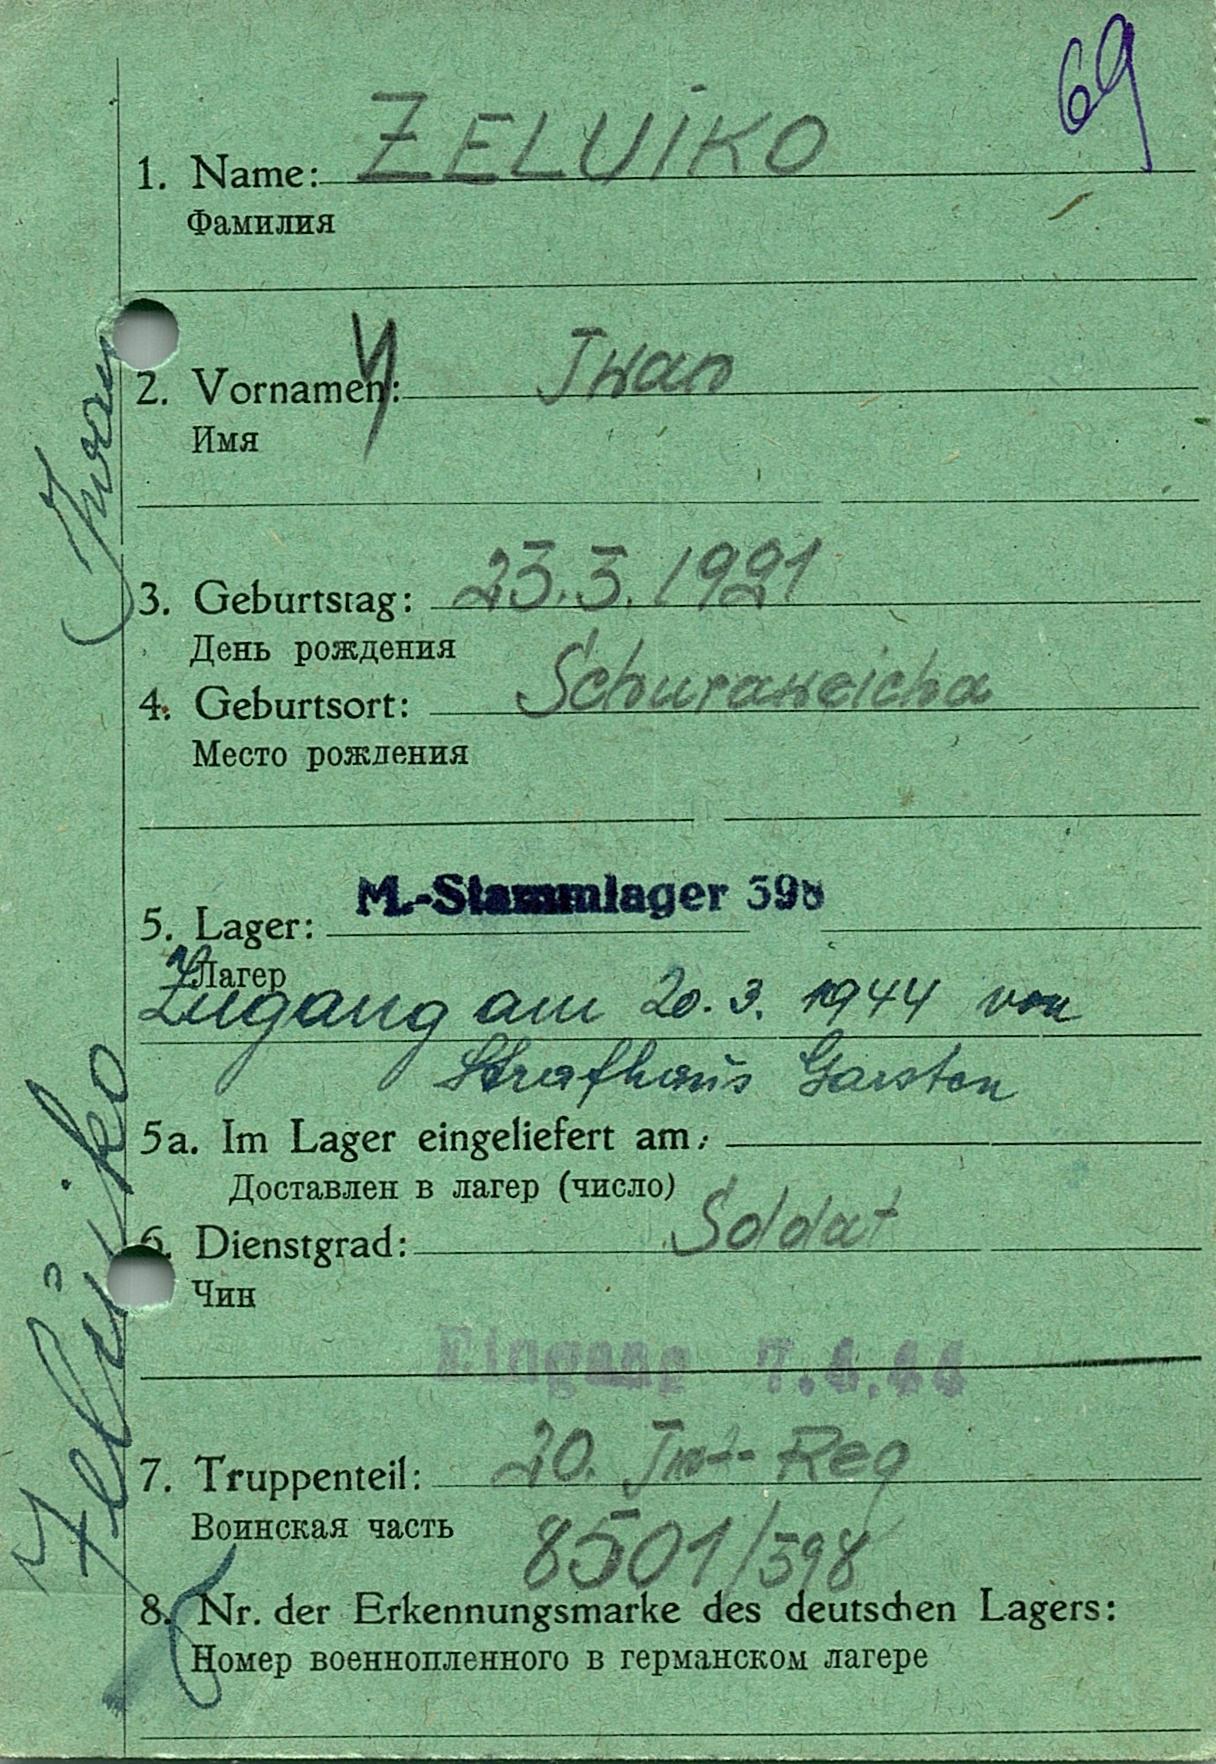 69
1. Name: ZELUIKO
Фамилия
2. Vornamen: Iwan
Имя
3. Geburtstag: 23.3.1921
День рождения
4. Geburtsort: Schuraweicha
Место рождения
M.-Stammlager 398
5. Lager:
Лагер
Zugang am 20.3.1944 von
Strafhaus Garsten
5a. Im Lager eingeliefert am:
Доставлен в лагер (число)
6. Dienstgrad: Soldat
Чин
Eingang 7.4.44
7. Truppenteil: 20. Inf-Reg
Воинская часть
8501/398
8. Nr. der Erkennungsmarke des deutschen Lagers:
Номер военнопленного в германском лагере
Zeluiko Iwan